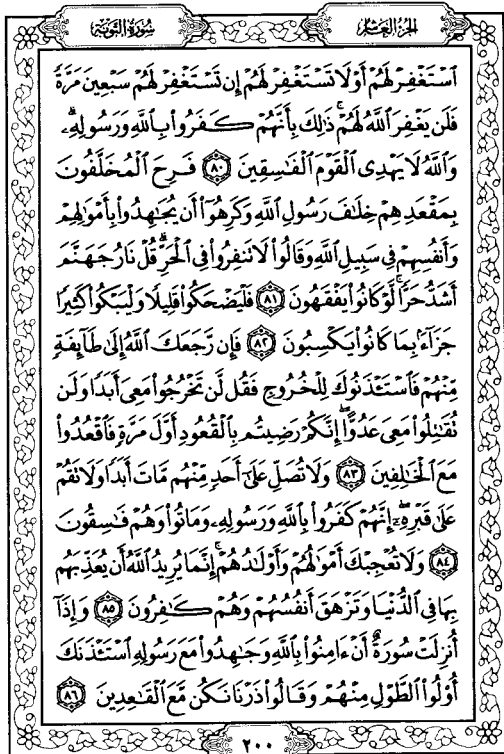 سُورَةُ التَّوْبَةِ
الجُزْءُ العَاشِرُ
ٱسْتَغْفِرْ لَهُمْ أَوْ لَا تَسْتَغْفِرْ لَهُمْ إِن تَسْتَغْفِرْ لَهُمْ سَبْعِينَ مَرَّةً
فَلَن يَغْفِرَ ٱللَّهُ لَهُمْ ۚ ذَٰلِكَ بِأَنَّهُمْ كَفَرُوا۟ بِٱللَّهِ وَرَسُولِهِۦ ۗ
وَٱللَّهُ لَا يَهْدِى ٱلْقَوْمَ ٱلْفَٰسِقِينَ ٨٠ فَرِحَ ٱلْمُخَلَّفُونَ
بِمَقْعَدِهِمْ خِلَٰفَ رَسُولِ ٱللَّهِ وَكَرِهُوٓا۟ أَن يُجَٰهِدُوا۟ بِأَمْوَٰلِهِمْ
وَأَنفُسِهِمْ فِى سَبِيلِ ٱللَّهِ وَقَالُوا۟ لَا تَنفِرُوا۟ فِى ٱلْحَرِّ ۗ قُلْ نَارُ جَهَنَّمَ
أَشَدُّ حَرًّا ۚ لَّوْ كَانُوا۟ يَفْقَهُونَ ٨١ فَلْيَضْحَكُوا۟ قَلِيلًا وَلْيَبْكُوا۟ كَثِيرًا
جَزَآءًۢ بِمَا كَانُوا۟ يَكْسِبُونَ ٨٢ فَإِن رَّجَعَكَ ٱللَّهُ إِلَىٰ طَآئِفَةٍ
مِّنْهُمْ فَٱسْتَـْٔذَنُوكَ لِلْخُرُوجِ فَقُل لَّن تَخْرُجُوا۟ مَعِىَ أَبَدًا وَلَن
تُقَٰتِلُوا۟ مَعِىَ عَدُوًّا ۖ إِنَّكُمْ رَضِيتُم بِٱلْقُعُودِ أَوَّلَ مَرَّةٍ فَٱقْعُدُوا۟
مَعَ ٱلْخَٰلِفِينَ ٨٣ وَلَا تُصَلِّ عَلَىٰٓ أَحَدٍ مِّنْهُم مَّاتَ أَبَدًا وَلَا تَقُمْ
عَلَىٰ قَبْرِهِۦٓ ۖ إِنَّهُمْ كَفَرُوا۟ بِٱللَّهِ وَرَسُولِهِۦ وَمَاتُوا۟ وَهُمْ فَٰسِقُونَ
٨٤ وَلَا تُعْجِبْكَ أَمْوَٰلُهُمْ وَأَوْلَٰدُهُمْ ۚ إِنَّمَا يُرِيدُ ٱللَّهُ أَن يُعَذِّبَهُم
بِهَا فِى ٱلدُّنْيَا وَتَزْهَقَ أَنفُسُهُمْ وَهُمْ كَٰفِرُونَ ٨٥ وَإِذَآ
أُنزِلَتْ سُورَةٌ أَنْ ءَامِنُوا۟ بِٱللَّهِ وَجَٰهِدُوا۟ مَعَ رَسُولِهِ ٱسْتَـْٔذَنَكَ
أُو۟لُوا۟ ٱلطَّوْلِ مِنْهُمْ وَقَالُوا۟ ذَرْنَا نَكُن مَّعَ ٱلْقَٰعِدِينَ ٨٦
٢٠٠